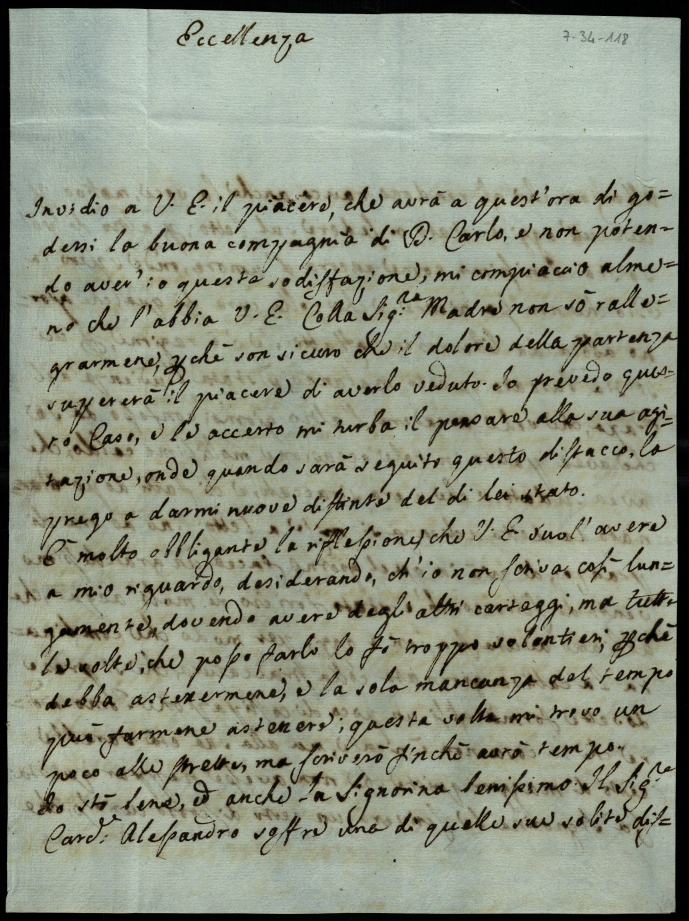 Eccellenza
7-34-118
Invidio a V. E. il piacere, che avrà a quest'ora di go=
dersi la buona compagnia di D. Carlo, e non poten=
do aver io questa sodisfazione, mi compiaccio alme=
no che l'abbia V. E. Colla Sig.ra Madre non sò ralle=
grarmene, pchè son sicuro che il dolore della partenza
supererà il piacere di averlo veduto. Io prevedo ques=
to Caso, e le accerto mi turba il pensare alla sua agi=
tazione, onde quando sarà seguito questo distacco, la
prego a darmi nuove distinte del di lei stato.
È molto obbligante la riflessione, che V. E. suol'avere
a mio riguardo, desiderando, ch'io non scriva così lun=
gamente, dovendo avere degli altri carteggi, ma tutte
le volte, che posso farlo lo fò troppo volontieri, pchè
debba astenermene, e la sola mancanza del tempo
può farmene astenere; questa volta mi trovo un
poco alle strette, ma scriverò finchè avrò tempo.
Io stò bene, ed anche la Signorina benissimo. Il Sig.re
Card.e Alessandro soffre una di quelle sue solite dis=